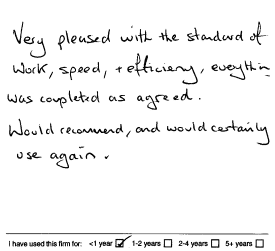 Very pleased with the standard of
work, speed, + efficieny, everythin
was completed as agreed.
Would recommend, and would certainly
use again.
I have used this firm for: <1 year ☑ 1-2 years ☐ 2-4 years ☐ 5+ years ☐